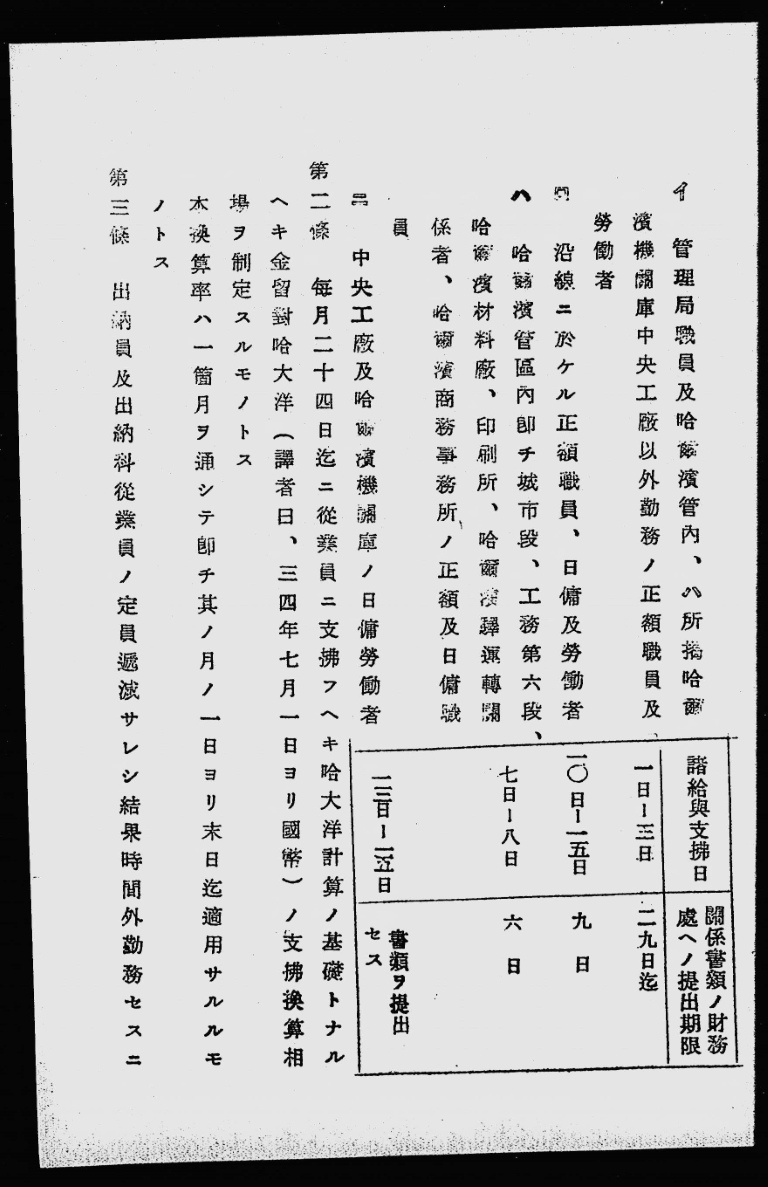 諸給與支拂日
關係書類ノ財務
處ヘノ提出期限
イ　管理局職員及哈爾濱管內、ハ所揭哈爾
濱機關庫中央工廠以外勤務ノ正額職員及
勞働者
一日ー三日
二九日迄
ロ　沿線ニ於ケル正額職員、日傭及勞働者
一〇日ー一五日
九日
ハ　哈爾濱管區內卽チ城市段、工務第六段、
哈爾濱材料廠、印刷所、哈爾濱驛運轉關
係者、哈爾濱商務事務所ノ正額及日傭職
員
七日ー八日
六日
ニ　中央工廠及哈爾濱機關庫ノ日傭勞働者
二三日ー二五日
書類ヲ提出
セス
第二條　每月二十四日迄ニ從業員ニ支拂フヘキ哈大洋計算ノ基礎トナル
ヘキ金留對哈大洋（譯者曰、三四年七月一日ヨリ國幣）ノ支拂換算相
場ヲ制定スルモノトス
本換算率ハ一箇月ヲ通シテ卽チ其ノ月ノ一日ヨリ末日迄適用サルルモ
ノトス
第三條　出納員及出納科從業員ノ定員遞減サレシ結果時間外勤務セスニ